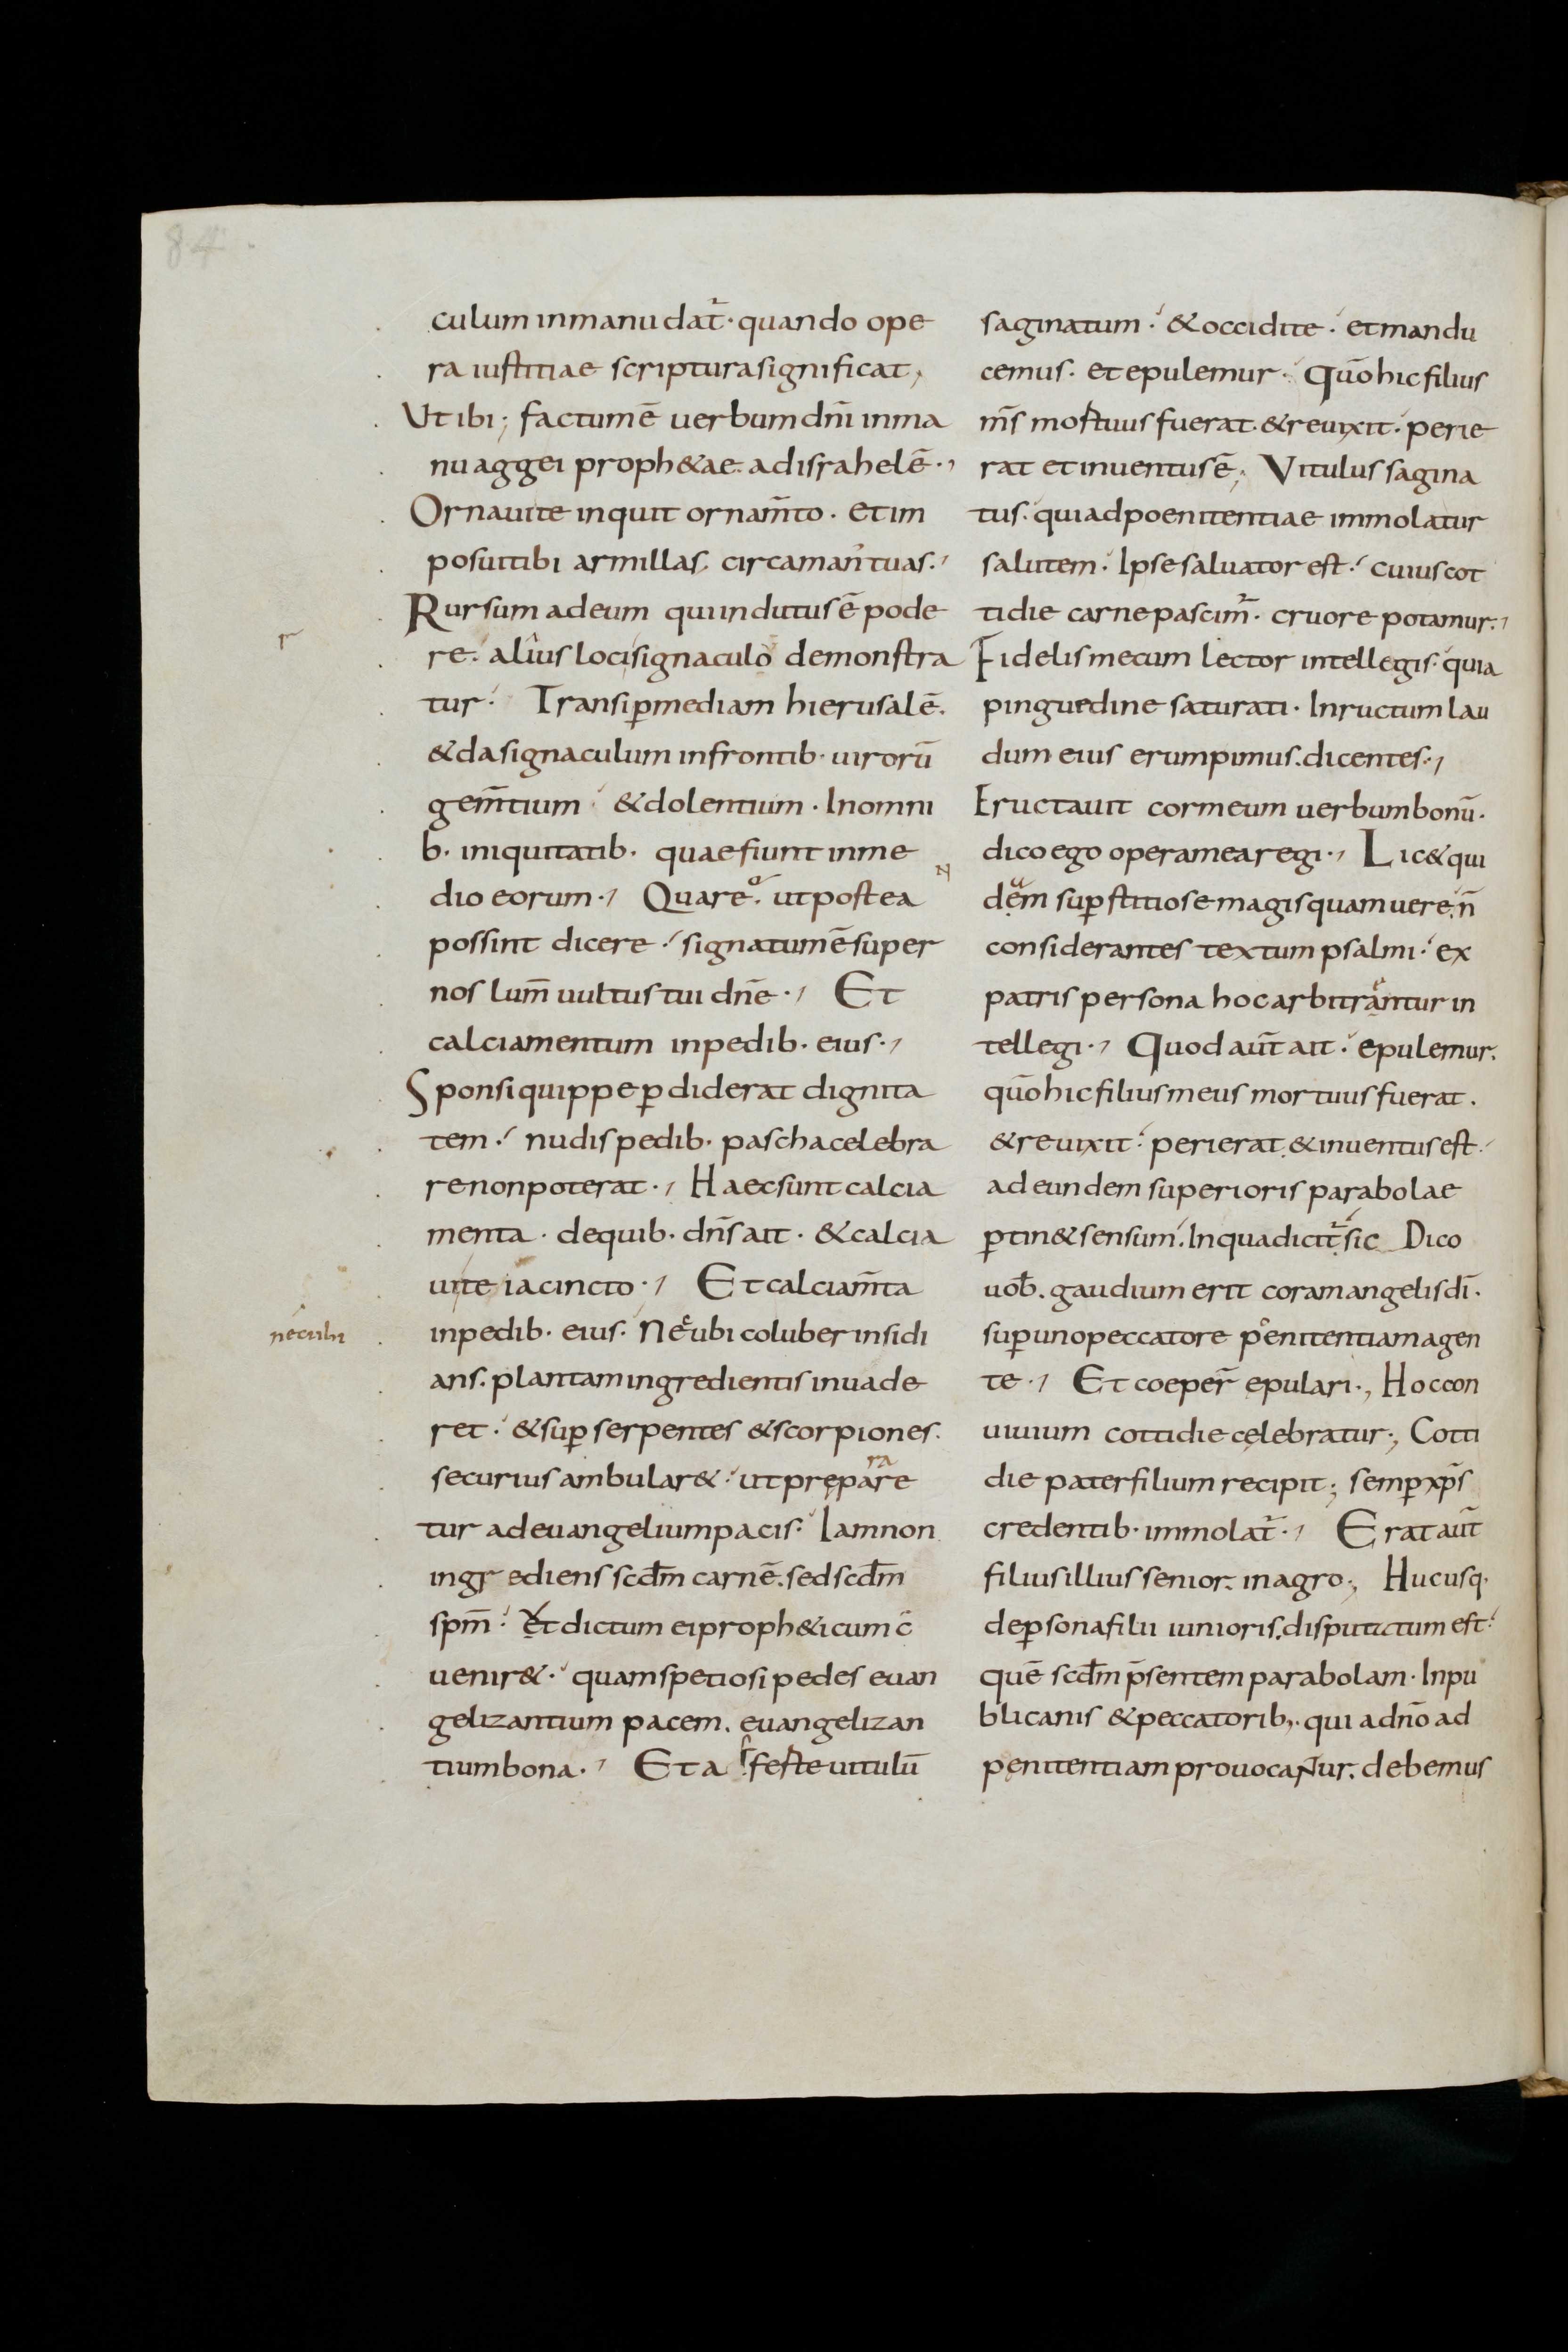 84
culum in manu dat᷑· quando ope
ra iustitiae scriptura significat;
Ut ibi; factum ē uerbum dn̄i in ma
nu aggei proph&ae· ad israhelē·,
Ornauit te inquit ornam̄to· et im
posuit tibi armillas· circa man᷑ tuas·,
Rursum ad eum qui indutus ē pode
r
re· alîus loci signaculo demonstra
tur· Transi ꝑ mediam hierusalē·
& da signaculum in frontib· uirorū
gem̄tium & dolentium· In omni
b· iniquitatib· quae fiunt in me
dio eorum·, Quare· ut postea
possint dicere· signatum ē super
nos lum̄ uultus tui dn̄e·, Et
calciamentum in pedib· eius·,
Sponsi quippe ꝑdiderat dignita
tem· nudis pedib· pascha celebra
re non poterat·, Haec sunt calcia
menta· de quib· dn̄s ait· & calcia
ui te iacincto·, Et calciam̄ta
nećubi
in pedib· eius· Nećubi coluber insidi
ans· plantam ingredientis inuade
ret· & suꝑ serpentes & scorpiones·
ra
securius ambular&· ut prępare
tur ad euangelium pacis· Iam non
ingrediens scd̄m carnē· sed scd̄m
spm̄· et dictum ei proph&icum c̄
uenir&· quam spetiosi pedes euan
gelizantium pacem· euangelizan
tium bona·, Et a ſferte uitulū
saginatum· & occidite· et mandu
cemus· et epulemur· Qūo hic filius
m̄s mortuus fuerat· & reuixit· perie
rat et inuentus ē; Vitulus sagina
tus· qui ad poenitentiae immolatur
salutem· Ipse saluator est· cuius cot
tidie carne pascim᷑· cruore potamur·,
Fidelis mecum lector intellegis· quia
pinguedine saturati· In ructum lau
dum eius erumpimus· dicentes·,
Eructauit cor meum uerbum bonū·
dico ego opera mea regi·, Lic& qui
dęm suꝑstitiose magis quam uere· n̄
considerantes textum psalmi· ex
patris persona hoc arbitrantur in
tellegi·, Quod aut̄ ait· epulemur·
qūo hic filius meus mortuus fuerat·
& reuixit· perierat· & inuentus est·
ad eundem superioris parabolae
ꝑtin& sensum· In qua dicit᷑ sic Dico
uob̄· gaudium erit coram angelis dī·
suꝑ uno peccatore poenitentiam agen
te·, Et coeper̄ epulari·, Hoc con
uiuium cottidie celebratur·, Cotti
die pater filium recipit; semꝑ xp̄s
credentib· immolat᷑·, Erat aut̄
filius illius senior· in agro·, Hucusq·
de ꝑsona filii iunioris· disputatum est·
quē scd̄m p̄sentem parabolam· In pu
blicanis & peccatorib;· qui a dn̄o ad
penitentiam prouocantur· debemus